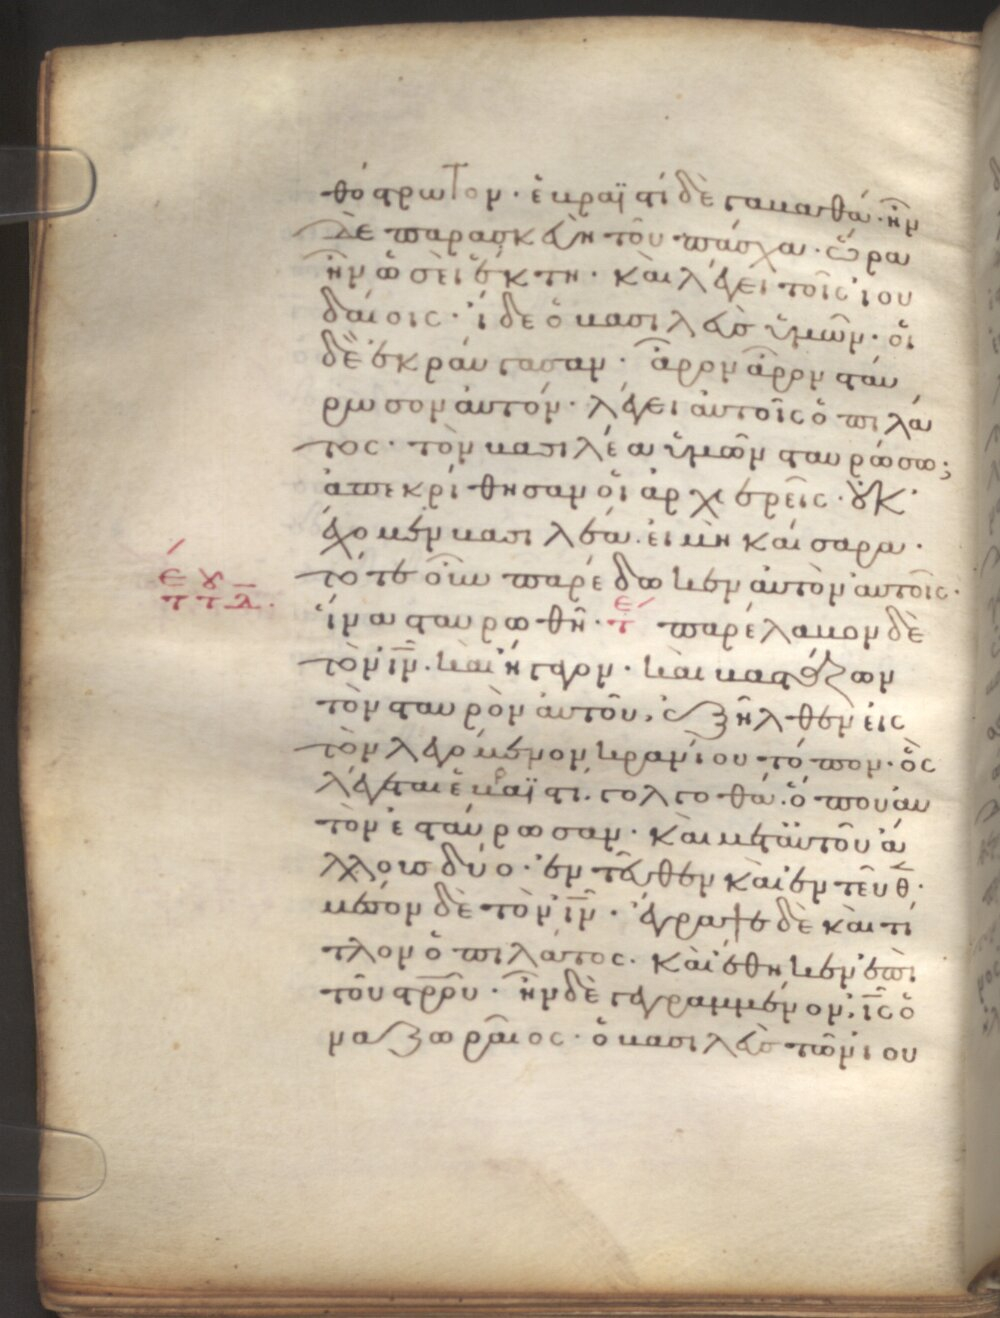 θόστρωτον· ἑβραϊστὶ δὲ γαββαθά· ἦν
δὲ παρασκευὴ τοῦ πάσχα· ὥρα
ἦν ὡσεὶ ἕκτη· καὶ λέγει τοῖς ἰου
δαίοις· ἴδε ὁ βασιλεὺς ὑμῶν· οἱ
δὲ ἐκραύγασαν· ἆρον ἆρον σταύ
ρωσον αὐτόν· λέγει αὐτοῖς ὁ πιλά
τος· τὸν βασιλέα ὑμῶν σταυρώσω;
ἀπεκρίθησαν οἱ ἀρχιερεῖς· οὐκ
ἔχομεν βασιλέα εἰ μὴ καίσαρα·
τότε οὖν παρέδωκεν αὐτὸν αὐτοῖς·
ἵνα σταυρωθῆ· τε παρέλαβον δὲ
τὸν ἰν̅· καὶ ἤγαγον· καὶ βαστάζων
τὸν σταυρὸν αὐτοῦ, ἐξῆλθεν εἰς
τὸν λεγόμενον κρανίου τόπον· ὃς
λέγεται ἑβραϊστί· γολγοθά· ὅπου αὐ
τὸν ἐσταύρωσαν· καὶ μετ' αὐτοῦ ἄ
λλους δύο· ἐντεῦθεν καὶ ἐντεῦθ·
μέσον δὲ τὸν ἰν̅· ἔγραψε δὲ καὶ τί
τλον ὁ πιλάτος· καὶ ἔθηκεν ἐπὶ
τοῦ στρου̅· ἦν δὲ γεγραμμένον, ις̅ ὁ
ναζωραῖος· ὁ βασιλεὺς τῶν ἰου